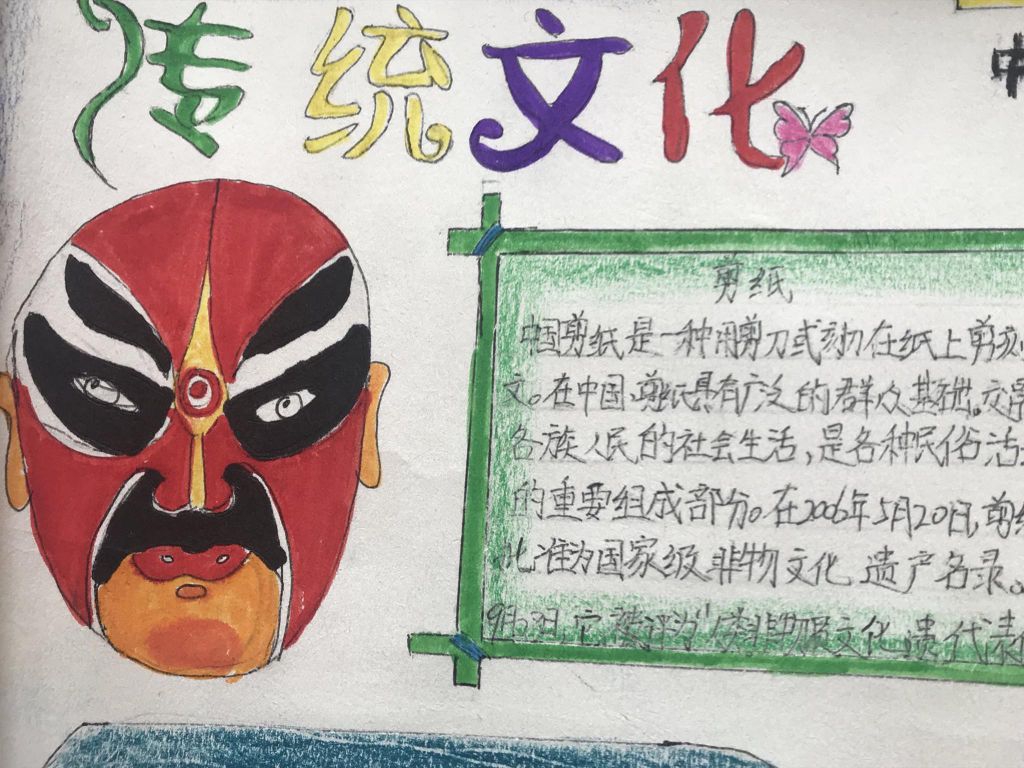 传统文化
中
剪纸
中国剪纸是一种用剪刀或刻刀在纸上剪刻
文。在中国,剪纸具有广泛的群众基础。交
各族人民的社会生活,是各种民俗活
的重要组成部分。在2006年5月20日,剪纸
批准为国家级非物文化遗产名录。
文化遗代表